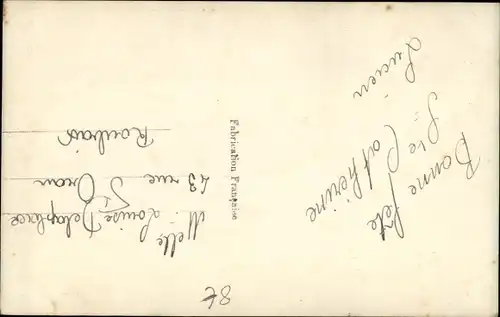 Bonne fête
Ste Catherine
Lucien
Fabrication Française
Melle Louise Delaplace
43 rue St Oran
Roubaix
8€